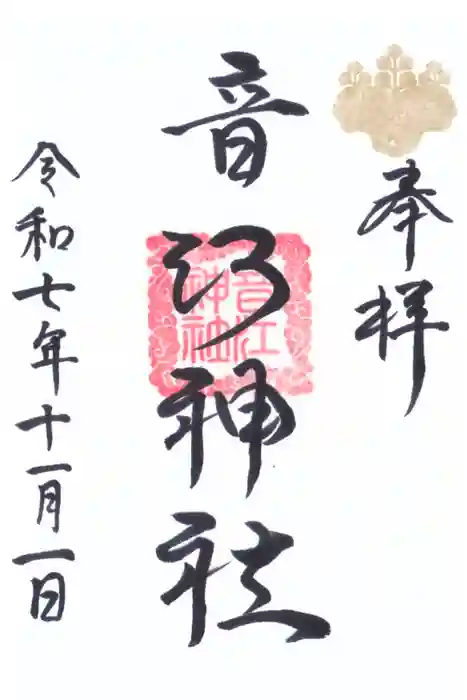 奉拝
音江神社
音江神社
令和七年十一月一日